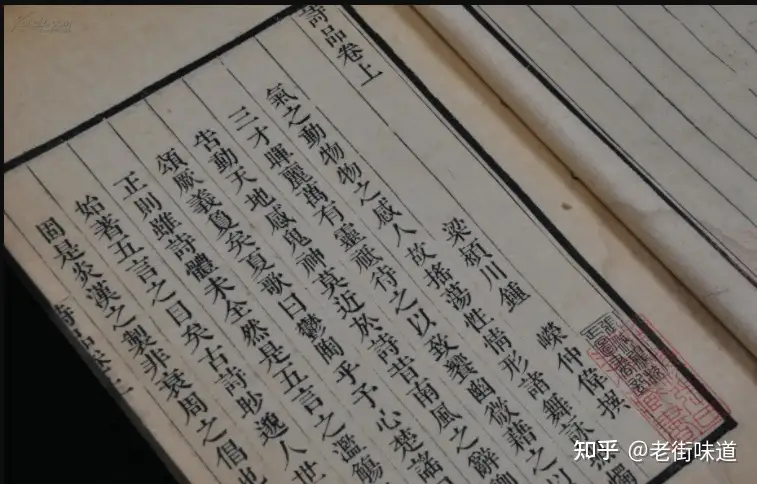 詩品卷上
梁潁川鍾　嶸仲偉撰
氣之動物物之感人故搖蕩性情形諸舞詠燭
三才暉麗萬有靈祇待之以致饗幽微藉之以
告動天地感鬼神莫近於詩昔南風之辭卿
頌厥義敻矣夏歌曰鬱陶乎予心楚謠曰
正則雖詩體未全然是五言之濫觴
始著五言之目矣古詩眇邈人世
固是炎漢之製非衰周之倡也
詩品卷上
知乎 @老街味道